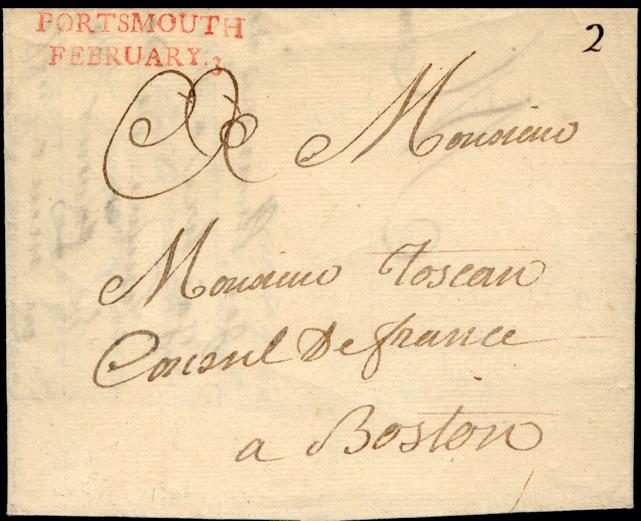 PORTSMOUTH
FEBRUARY. 3
2
A Monsieur
Monsieur Toscan
Consul De france
a Boston